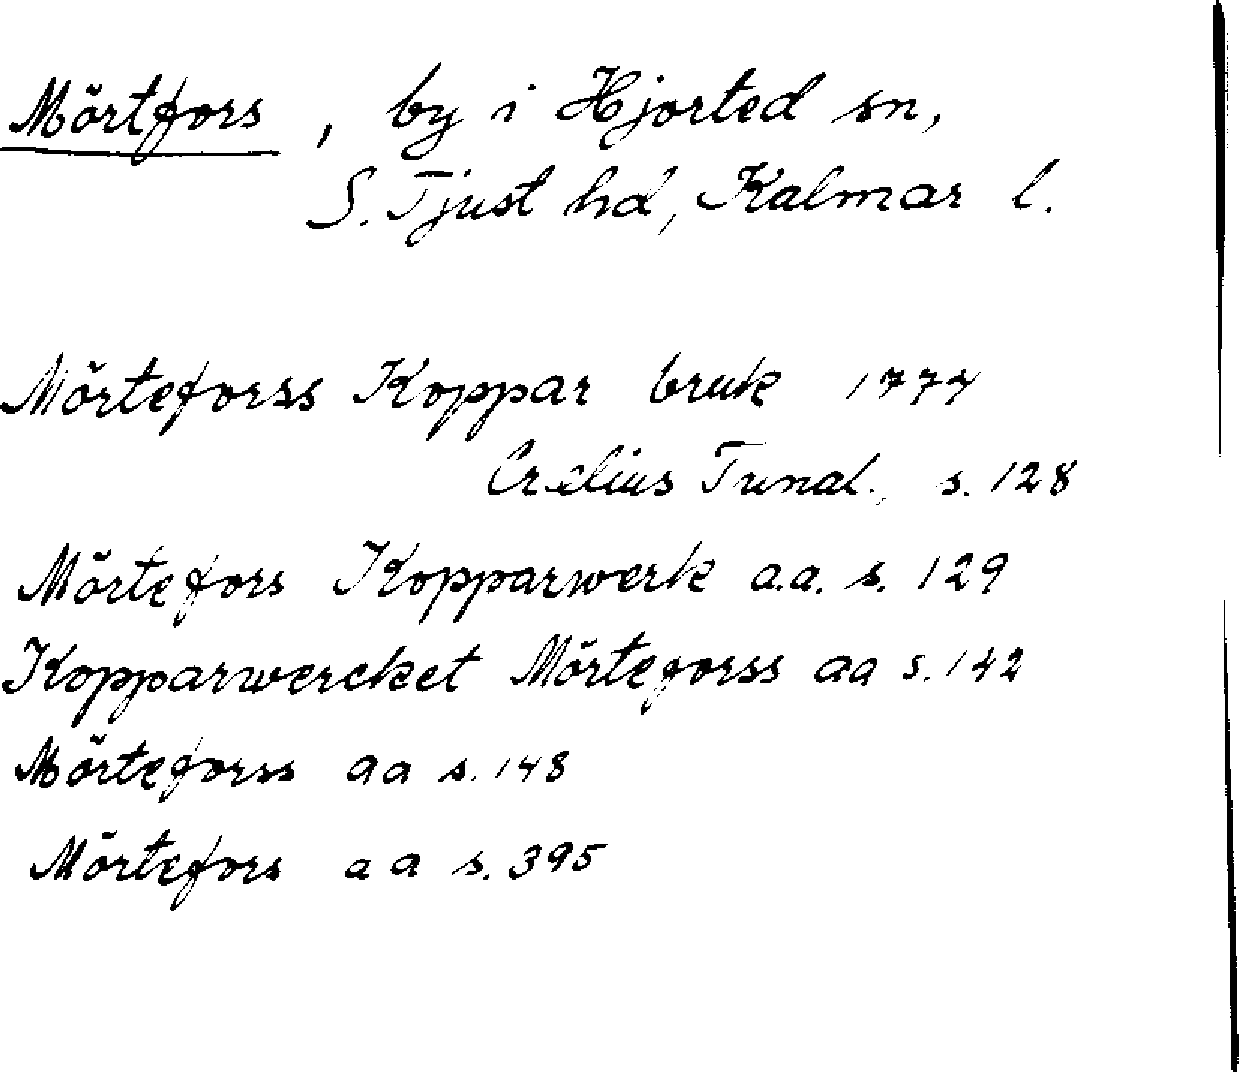 Mörtfors, by i Hjorted sn,
S. Tjust hd, Kalmar l.
Mörteforss Koppar bruk 1774
Crælius Tunal., s. 128
Mörtefors Kopparwerk a.a. s. 129
Kopparwercket Mörteforss aa s. 142
Mörteforss aa s. 148
Mörtefors aa s. 395